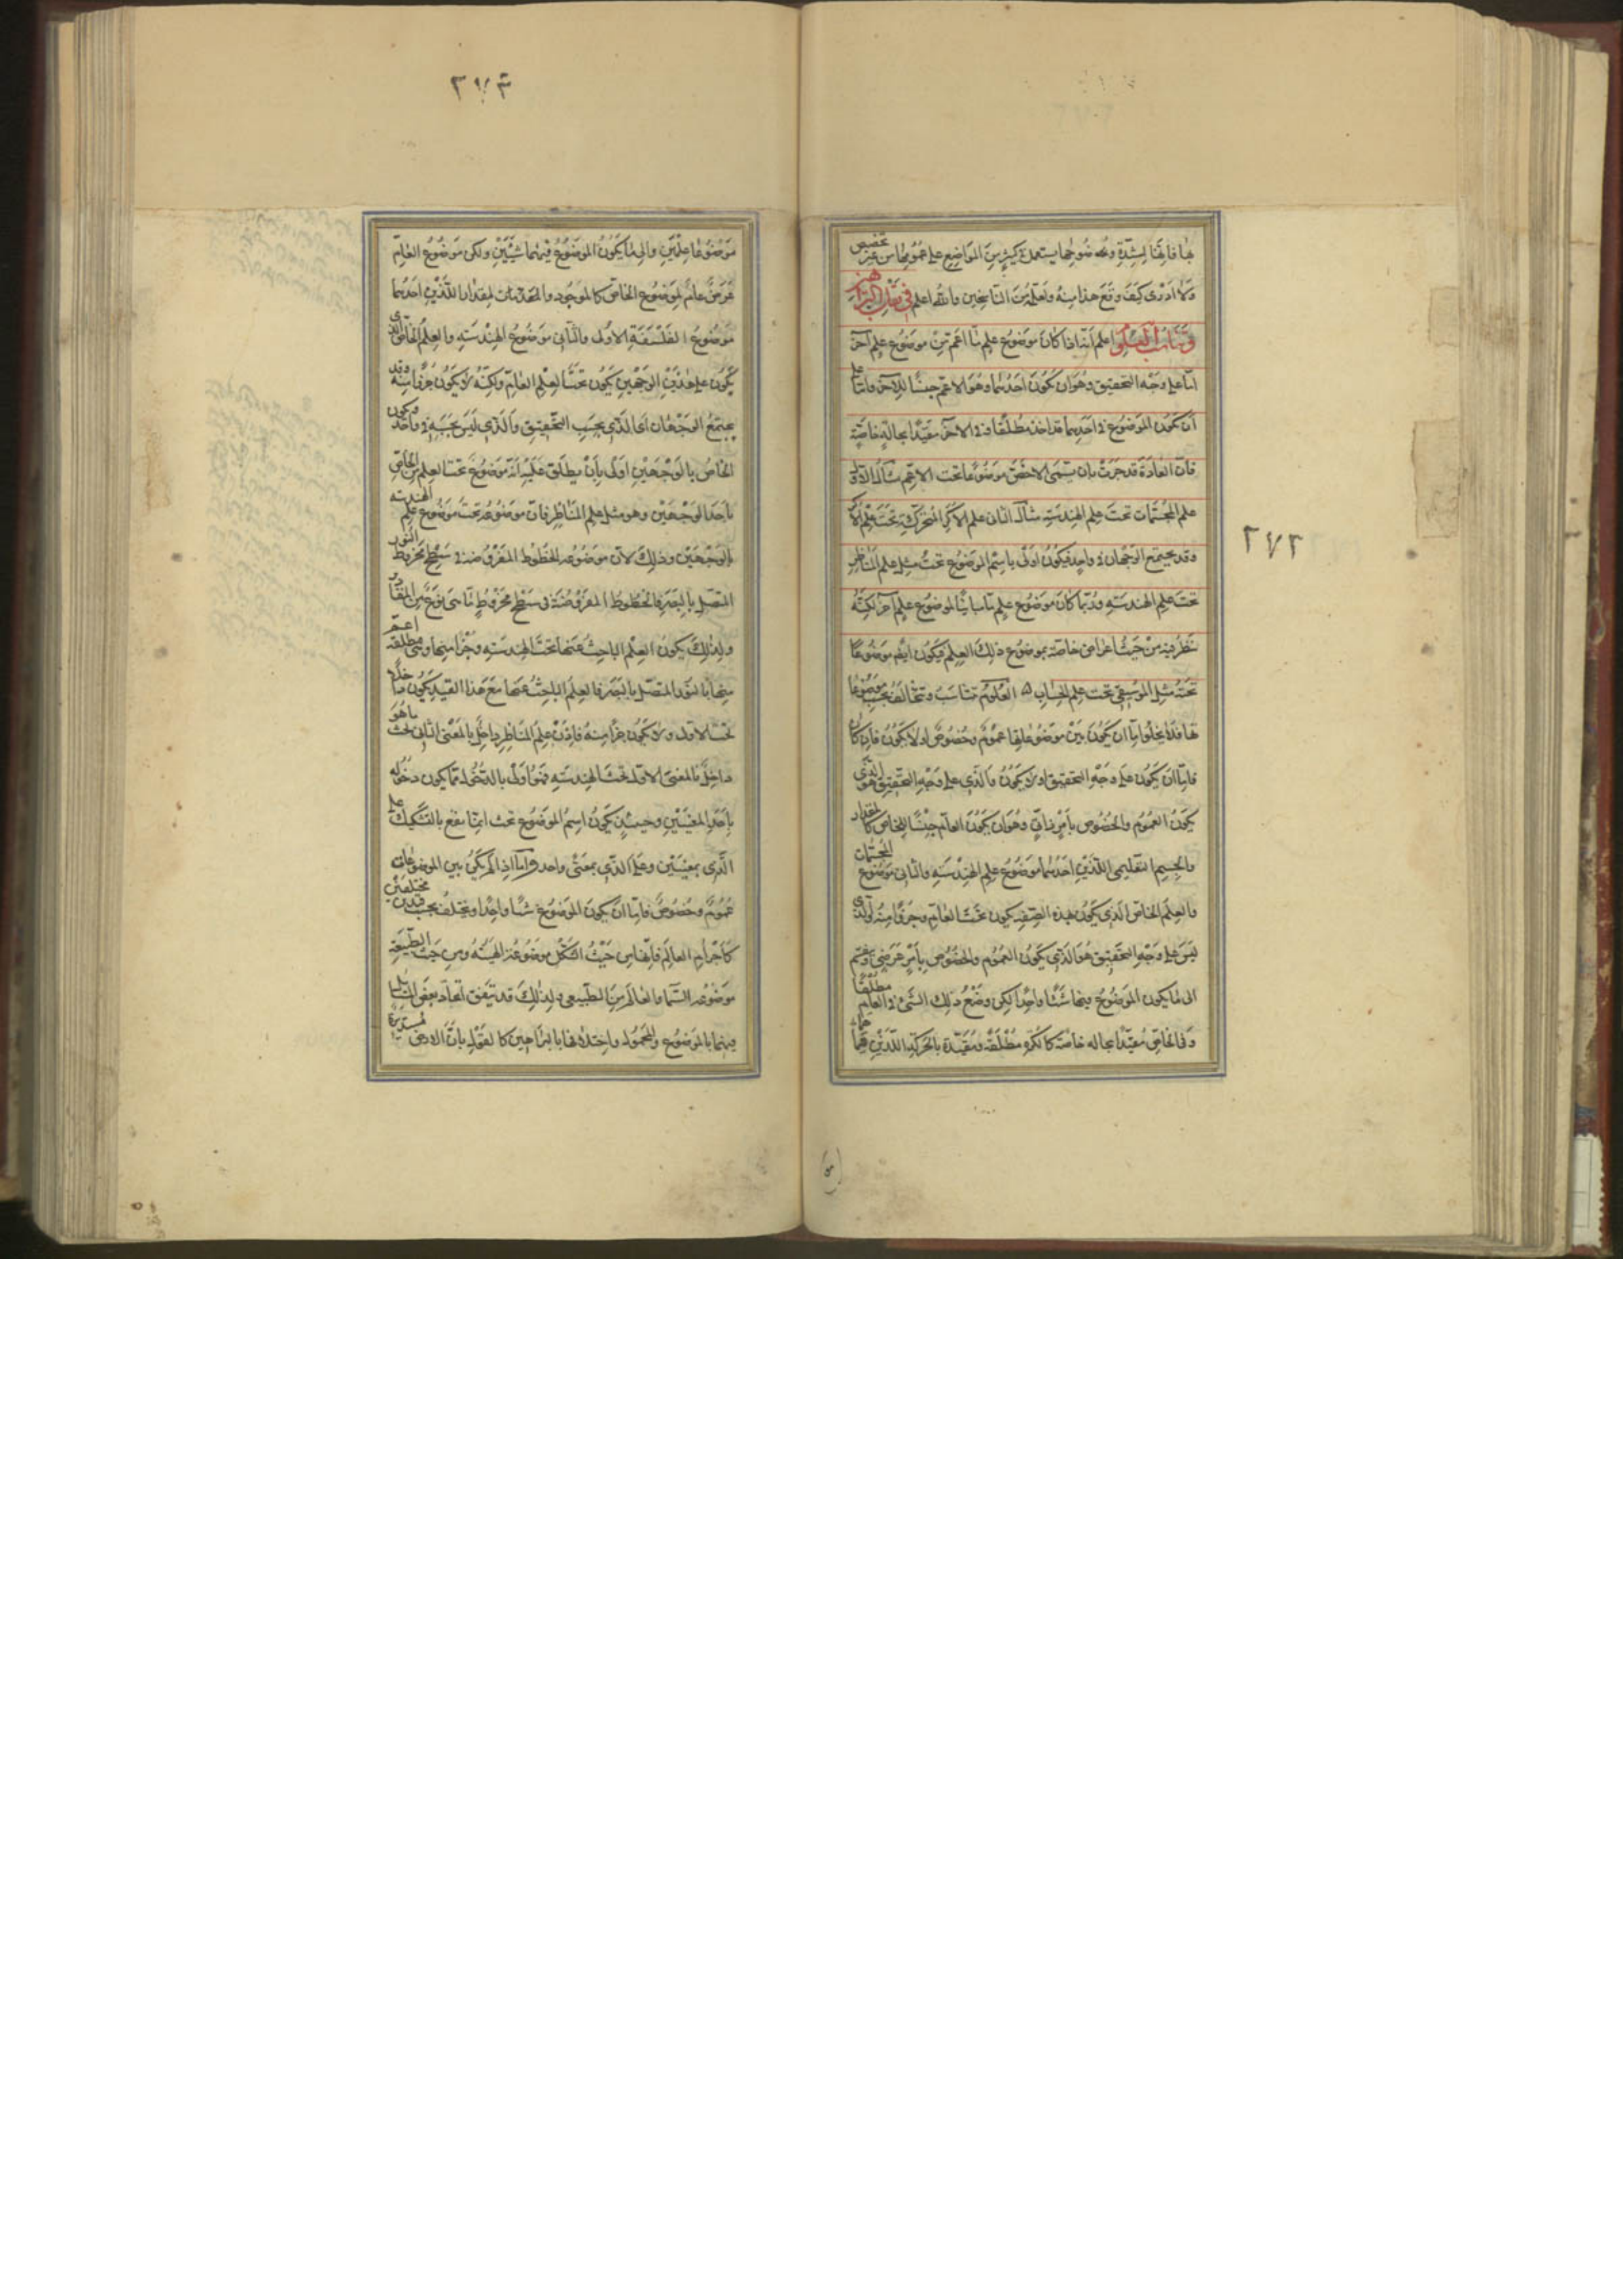 ٢٧٢
بها فانها لشدة وضوحها يستعمل كثير من المواضع على عمومها من غير تخصيص
ولا ادرى كيف وقع هذا منه ولعله من الناسخين والله اعلم فى نقل البراهين
وتناسب العلوم اعلم انه اذا كان موضوع علم ما اعم من موضوع علم آخر
اما على وجه التحقيق وهو ان يكون احدهما وهو الاعم جنسا للآخر واما على
ان يكون الموضوع فى احدهما قد اخذ مطلقا وفى الآخر مقيدا بحالة خاصة
فان العادة قد جرت بان يسمى الاخص موضوعا تحت الاعم مثال الاول
علم المجسمات تحت علم الهندسة مثال الثانى علم الاكر المتحركة تحت علم الاكر
وقد يجتمع الوجهان فى واحد فيكون اولى باسم الموضوع تحت مثل علم المناظر
تحت علم الهندسة وربما كان موضوع علم ما مباينا لموضوع علم آخر لكنه
ينظر فيه من حيث اعراض خاصة بموضوع ذلك العلم فيكون ايضا موضوعا
تحته مثل الموسيقى تحت علم الحساب العلوم تناسب وتتخالف بحسب موضوعا
تها فلا يخلو اما ان يكون بين موضوعاتها عموم وخصوص او لا يكون فان كان
فاما ان يكون على وجه التحقيق او لا يكون والذى على وجه التحقيق هو الذى
يكون العموم والخصوص بامر ذاتى وهو ان يكون العام جنسا للخاص كالمقدار
والجسم التعليمى اللذين احدهما موضوع علم الهندسة والثانى موضوع المجسمات
والعلم الخاص الذى يكون بهذه الصفة يكون تحت العام وجزءا منه والذى
ليس على وجه التحقيق هو الذى يكون العموم والخصوص بامر عرضى وينقسم
الى ما يكون الموضوع فيها شيئا واحدا لكن وضع ذلك الشىء فى العام مطلقا
وفى الخاص مقيدا بحالة خاصة كالكرة مطلقة ومقيدة بالحركة اللذين هما
٢٧٣
موضوعا علمين والى ما يكون الموضوع فيهما شيئين ولكن موضوع العام
عرض عام لموضوع الخاص كالموجود والمقدار اللذين احدهما
موضوع الفلسفة الاولى والثانى موضوع الهندسة والعلم الخاص الذى
يكون على هذين الوجهين يكون تحت العلم العام ولكنه لا يكون جزءا منه وقد
يجتمع الوجهان اى الذى بحسب التحقيق والذى ليس بحسبه فى واحد فيكون
الخاص بالوجهين اولى بان يطلق عليه انه موضوع تحت العلم من الخاص
باحد الوجهين وهو مثل علم المناظر فان موضوعه تحت موضوع علم الهندسة
بالوجهين وذلك لان موضوعه الخطوط المفروضة فى سطح مخروط النور
المتصل بالبصر فالخطوط المفروضة فى سطح مخروط ما هى نوع من المقادير
ولذلك يكون العلم الباحث عنها تحت الهندسة وجزءا منها وهى مطلقة اعم
منها بالنور المتصل بالبصر فالعلم الباحث عنها مع هذا القيد يكون داخلا
تحت الاول ولا يكون جزءا منه فاذن علم المناظر داخل بالمعنى الثانى تحت ما هو
داخل بالمعنى الاول تحت الهندسة فهو اولى بالدخول مما يكون دخوله
باحد المعنيين وحينئذ يكون اسم الموضوع تحت انما يقع بالتشكيك على
الذى بمعنيين وعلى الذى بمعنى واحد واما اذا لم يكن بين الموضوعات
عموم وخصوص فاما ان يكون الموضوع شيئا واحدا ويختلف بحسب قيدين مختلفين
كاجرام العالم فانها من حيث الشكل موضوعة للهيئة ومن حيث الطبيعة
موضوعة للسماء والعالم من الطبيعى ولذلك قد يتفق اتحاد بعض المسائل
فيهما بالموضوع والمحمول واختلافها بالبراهين كالقول بان الارض مستديرة